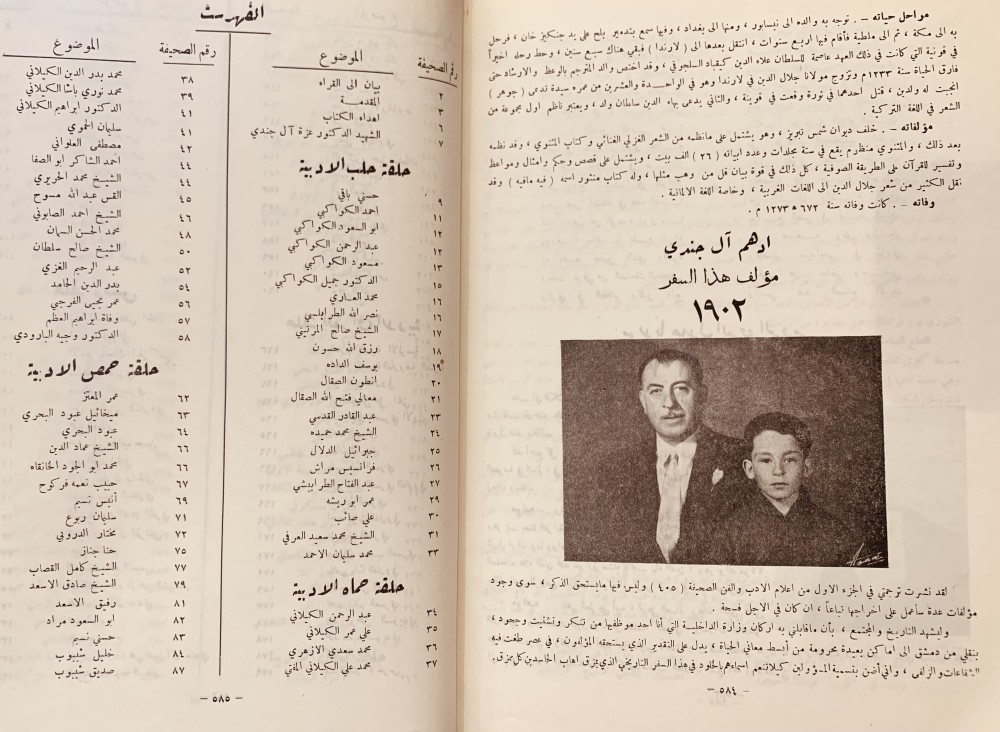 مراحل حياته – . توجه به والده الى نيسابور ، ومنها الى بغداد ، وفيها سمع بتدمير بلخ على يد جنكيز خان ، فرحل
به الى مكة ، ثم الى ملطية فأقام فيها اربع سنوات ، انتقل بعدها الى ( لارندا ) فبقي هناك سبع سنين ، وحط رحله اخيراً
في قونية التي كانت في ذلك العهد عاصمة للسلطان علاء الدين كيقباد السلجوقي ، وقد اختص والد المترجم بالوعظ والارشاد حتى
فارق الحياة سنة ١٢٣٣م وتزوج مولانا جلال الدين في لارندا وهو في الواحدة والعشرين من عمره سيدة تدعى ( جوهر )
انجبت له ولدين ، قتل احدهما في ثورة وقعت في قوينة ، والثاني يدعى بهاء الدين سلطان ولد ، ويعتبر ناظم اول مجموعة من
الشعر في اللغة التركية .
مؤلفاته – . خلف ديوان شمس تبريز ، وهو يشتمل على مانظمه من الشعر الغزلي الغنائي وكتاب المثنوي ، وقد نظمه
بعد ذلك ، والمثنوي منظوم يقع في ستة مجلدات وعدد ابياته ( ٢٦ ) الف بيت ، ويشتمل على قصص وحكم وامثال ومواعظ
وتفسير للقرآن على الطريقة الصوفية ، كل ذلك في قوة بيان قل من وهب مثلها ، وله كتاب منثور اسمه ( فيه مافيه ) وقد
نقل الكثير من شعر جلال الدين الى اللغات الغربية ، وخاصة اللغة الالمانية .
وفاته – . كانت وفاته سنة ٦٧٢ هـ ١٢٧٣ م .
ادهم آل جندي
مؤلف هذا السفر
١٩٠٢
لقد نشرت ترجمتي في الجزء الاول من اعلام الادب والفن الصحيفة ( ٤٠٥ ) وليس فيها مايستحق الذكر ، سوى وجود
مؤلفات عدة سأعمل على اخراجها تباعاً ، ان كان في الاجل فسحة .
وليشهد التاريخ والمجتمع ، بأن ماقابلني به اركان وزارة الداخلية التي أنا احد موظفيها من تنكر وتشتيت وجحود ،
بنقلي من دمشق الى اماكن بعيدة محرومة من أبسط معاني الحياة ، يدل على التقدير الذي يستحقه المؤلفون ، في عصر طغت فيه
الشفاعات والزلفى ، واني أضن بتسمية المسؤولين كيلا تنعم اسماءهم بالخلود في هذا السفر التاريخي الذي يمزق اهاب الحاسدين كل ممزق.
– ٥٨٤ –
الفهرست
رقم الصحيفة الموضوع
٢ بيان الى القراء
٣ المقدمة
٦ اهداء الكتاب
٧ الشهيد الدكتور عزة آل جندي
حلقة حلب الادبية
٩ حسني باقي
١١ احمد الكواكبي
١٢ ابو السعود الكواكبي
١٢ عبد الرحمن الكواكبي
١٣ مسعود الكواكبي
١٥ الدكتور جميل الكواكبي
١٦ محمد العاري
١٦ نصر الله الطرابلسي
١٧ الشيخ صالح المرتيني
١٨ رزق الله حسون
١٩ يوسف الداده
٢٠ انطون الصقال
٢١ معالي فتح الله الصقال
٢٣ عبد القادر القدسي
٢٤ الشيخ محمد حميده
٢٥ جبرائيل الدلال
٢٦ فرانسيس مراش
٢٧ عبد الفتاح الطرابيشي
٢٩ عمر ابو ريشه
٣٠ علي صائب
٣١ الشيخ محمد سعيد العرفي
٣٣ محمد سليمان الاحمد
حلقة حماه الادبية
٣٤ عبد الرحمن الكيلاني
٣٥ علي عمر الكيلاني
٣٦ محمد سعدي الازهري
٣٧ محمد علي الكيلاني المفتي
رقم الصحيفة الموضوع
٣٨ محمد بدر الدين الكيلاني
٣٩ محمد نوري باشا الكيلاني
٤١ الدكتور ابراهيم الكيلاني
٤١ سليمان الحموي
٤٢ مصطفى العلواني
٤٤ احمد الشاكر ابو الصفا
٤٤ الشيخ محمد الحريري
٤٥ القس عبد الله مسوح
٤٦ الشيخ احمد الصابوني
٤٨ محمد الحسن السمان
٥٠ الشيخ صالح سلطان
٥٢ عبد الرحيم الغزي
٥٤ بدر الدين الحامد
٥٦ عمر يحيى الفرجي
٥٧ وفاة ابراهيم العظم
٥٨ الدكتور وجيه البارودي
حلقة حمص الادبية
٦٢ عمر المعتز
٦٣ ميخائيل عبود البحري
٦٤ عبود البحري
٦٦ الشيخ عماد الدين
٦٦ محمد ابو الجود الخانقاه
٦٧ حبيب نعمه فركوح
٦٩ أنيس نسيم
٧١ سليمان ربوع
٧٢ مختار الدروبي
٧٥ حنا خباز
٧٧ الشيخ كامل القصاب
٧٩ الشيخ صادق الاسعد
٨١ رفيق الاسعد
٨٢ ابو السعود مراد
٨٣ حسني نسيم
٨٤ خليل شيبوب
٨٧ صديق شيبوب
– ٥٨٥ –